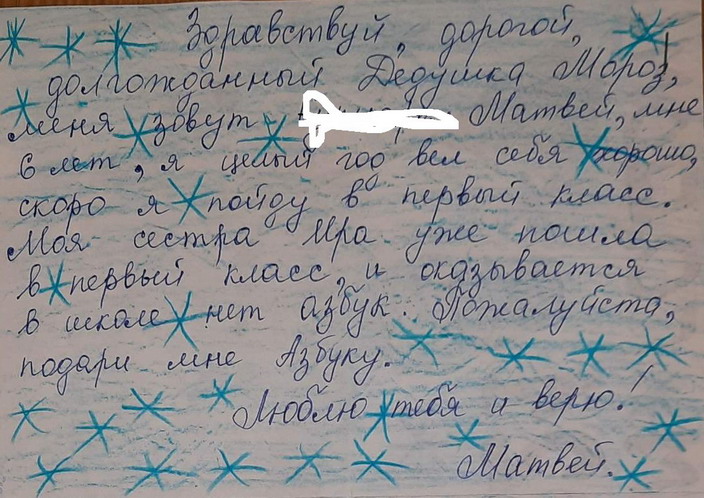 Здравствуй, дорогой,
долгожданный Дедушка Мороз!,
меня зовут - Матвей, мне
6 лет, я целый год вел себя хорошо,
скоро я пойду в первый класс.
Моя сестра Ира уже пошла
в первый класс, и оказывается
в школе нет азбук. Пожалуйста,
подари мне Азбуку.
Люблю тебя и верю!
Матвей.